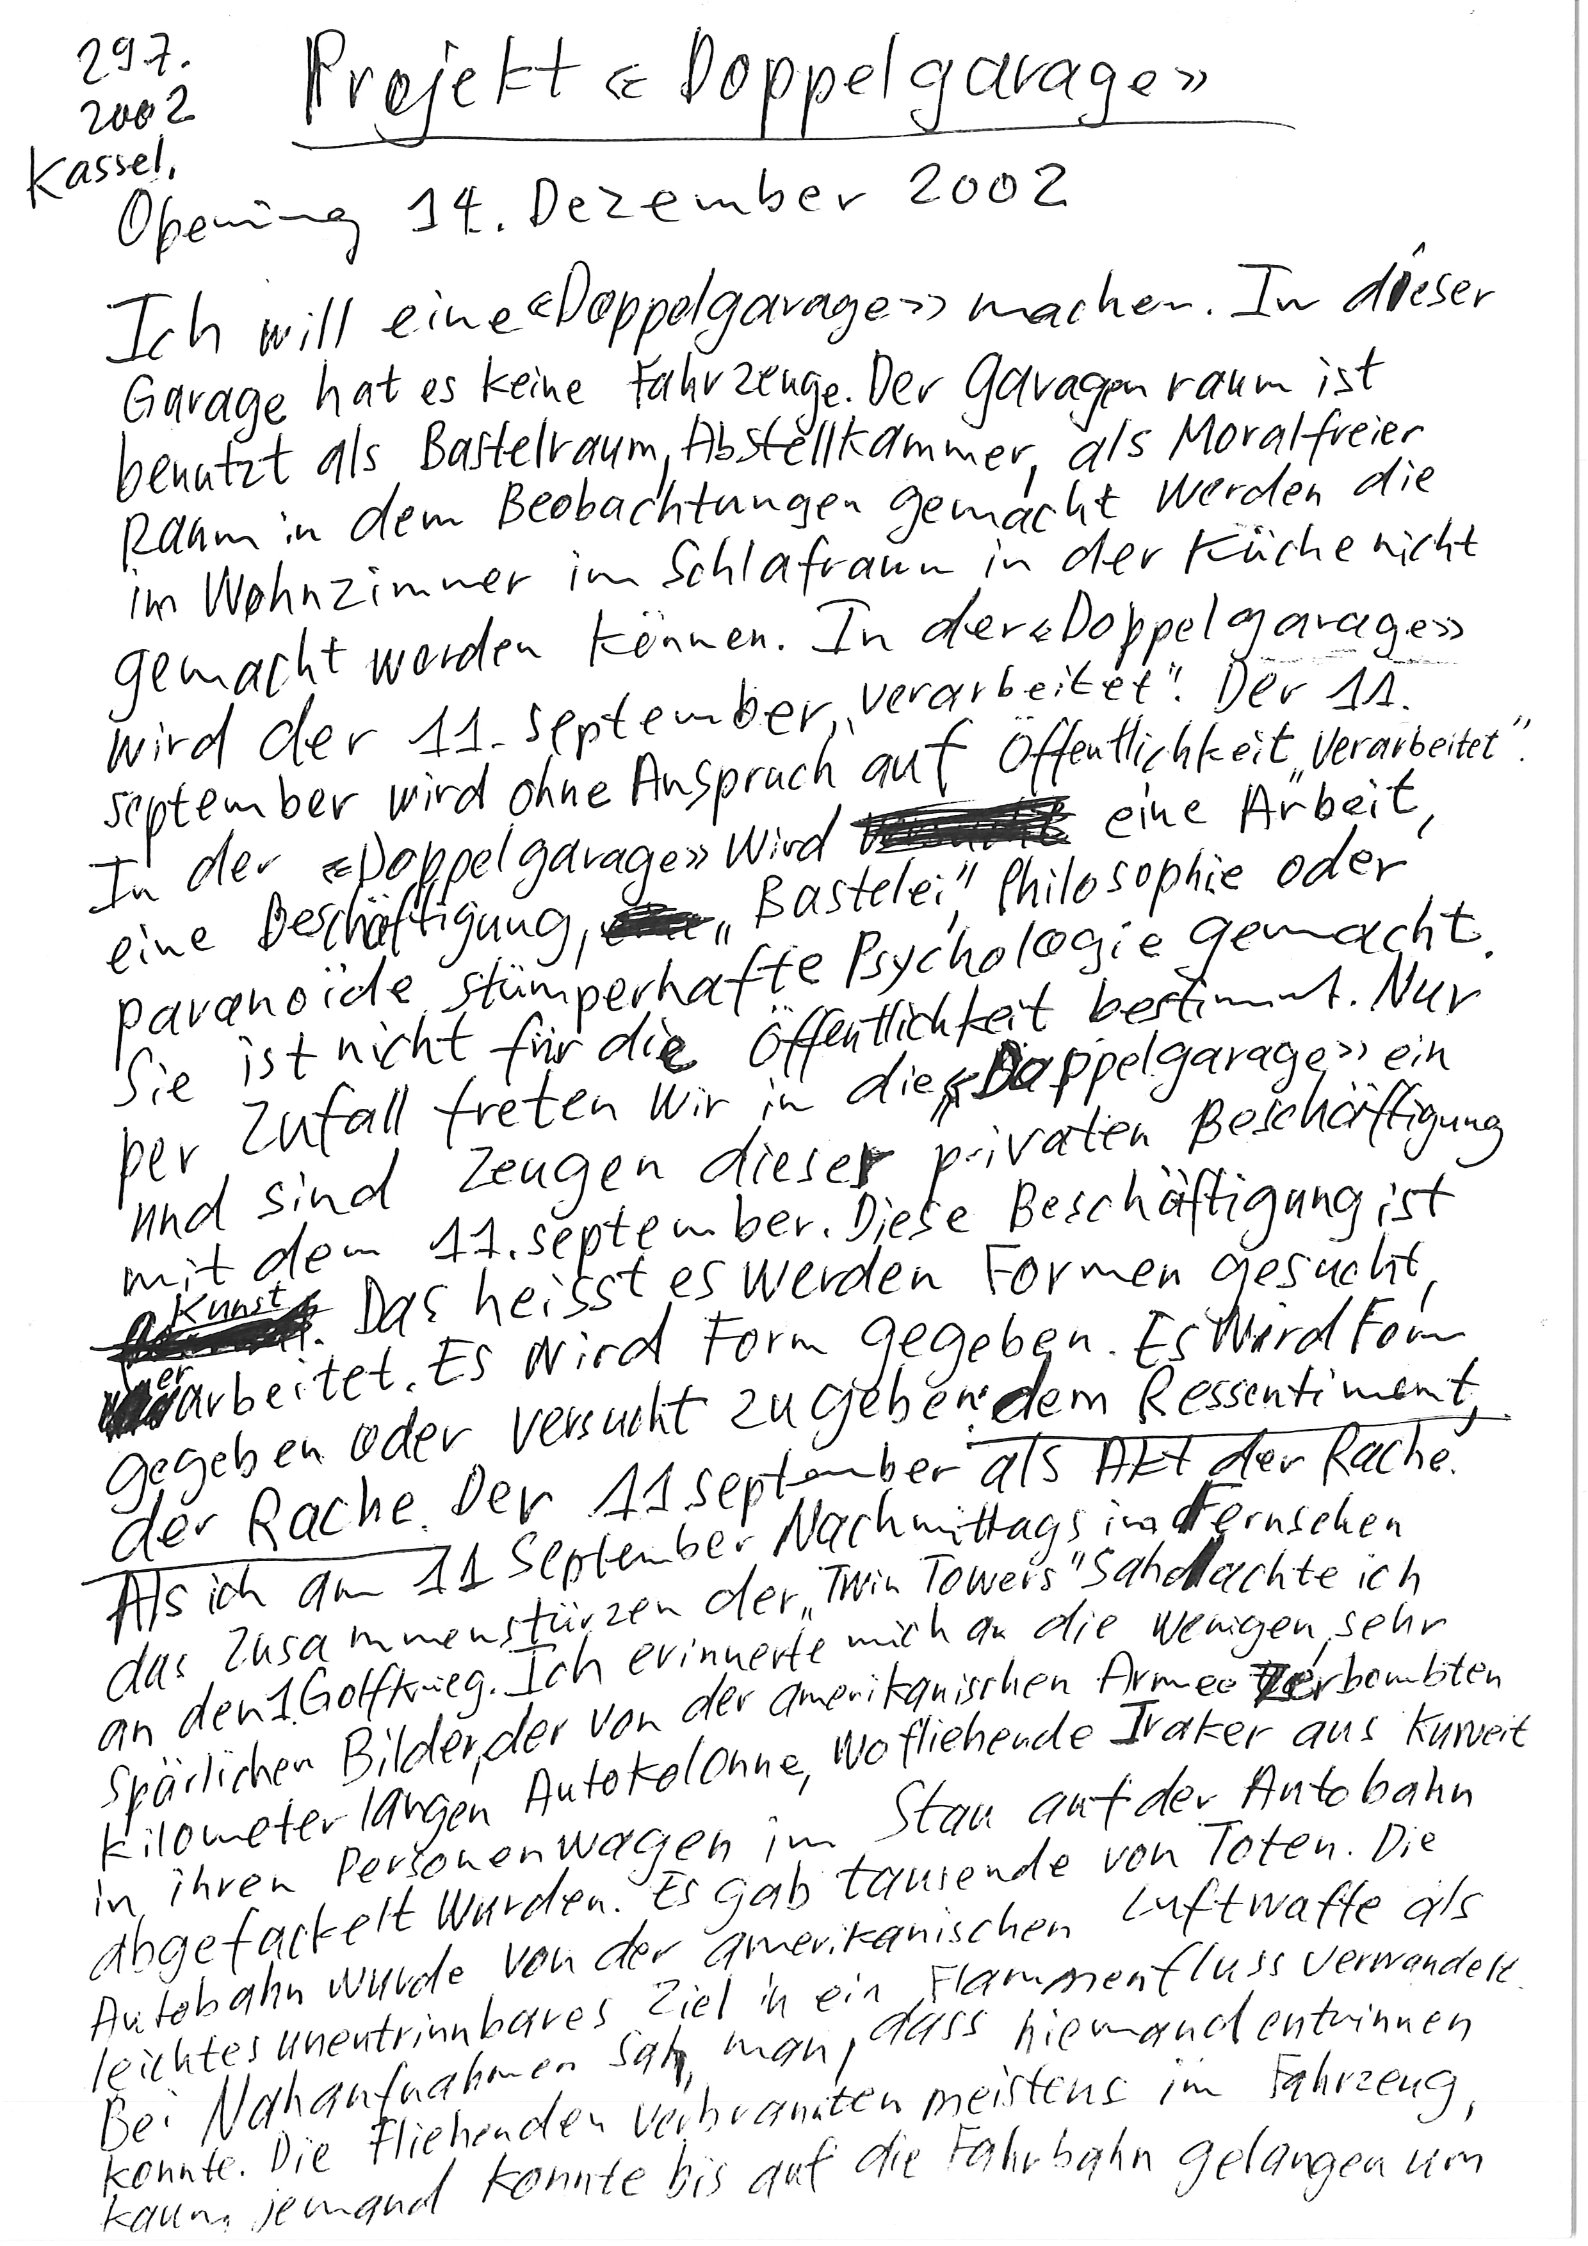 297.
2002
Kassel.
Projekt «Doppelgarage»
Opening 14. Dezember 2002
Ich will eine «Doppelgarage» machen. In dieser
Garage hat es keine Fahrzeuge. Der Garagenraum ist
benutzt als Bastelraum, Abstellkammer, als Moralfreier
Raum in dem Beobachtungen gemacht werden die
im Wohnzimmer im Schlafraum in der Küche nicht
gemacht werden können. In der «Doppelgarage»
wird der 11. september „verarbeitet". Der 11.
september wird ohne Anspruch auf Öffentlichkeit „verarbeitet".
In der «Doppelgarage» wird eine Arbeit,
eine Beschäftigung, „Bastelei", Philosophie oder
paranoïde stümperhafte Psychologie gemacht.
Sie ist nicht für die Öffentlichkeit bestimmt. Nur
per Zufall treten wir in die «Doppelgarage» ein
und sind Zeugen dieser privaten Beschäftigung
mit dem 11. september. Diese Beschäftigung ist
Kunst. Das heisst es werden Formen gesucht,
erarbeitet. Es wird Form gegeben. Es wird Form
gegeben oder versucht zu geben: dem Ressentiment,
der Rache. Der 11 september als Akt der Rache.
Als ich am 11 September Nachmittags im Fernsehen
das Zusammenstürzen der „Twin Towers" sah dachte ich
an den 1. Golfkrieg. Ich erinnerte mich an die wenigen, sehr
spärlichen Bilder, der von der amerikanischen Armee zerbombten
kilometerlangen Autokolonne, wo fliehende Iraker aus Kuweit
in ihren Personenwagen im Stau auf der Autobahn
abgefackelt wurden. Es gab tausende von Toten. Die
Autobahn wurde von der amerikanischen Luftwaffe als
leichtes unentrinnbares Ziel in ein Flammenfluss verwandelt.
Bei Nahaufnahmen sah man, dass niemand entrinnen
konnte. Die Fliehenden verbrannten meistens im Fahrzeug,
kaum jemand konnte bis auf die Fahrbahn gelangen um